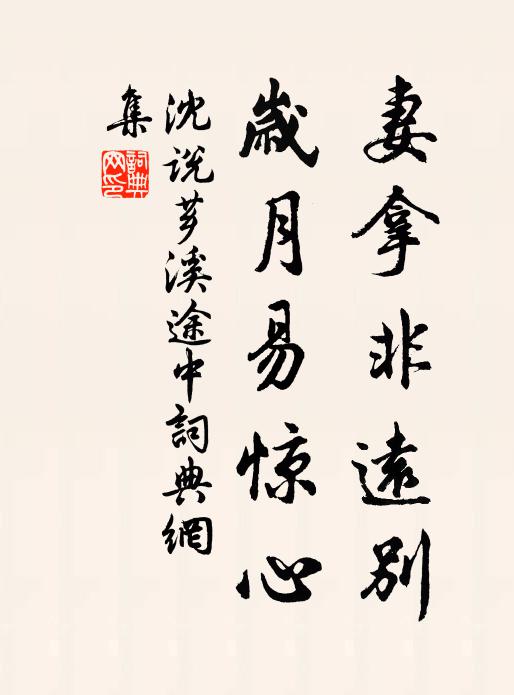 妻拿非遠別
歲月易惊心
沈说苕溪途中詞典網
集
詞典網